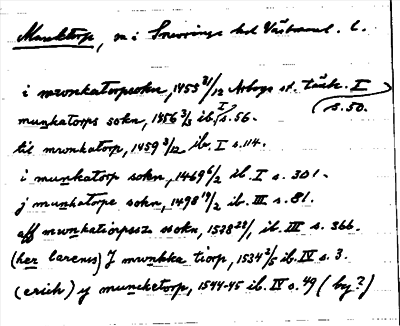 Muncktorp, sn i Snevringe hd Västmanl. l.
i mwnkatorpsokn, 1455 21/12 Arboga st. tänk. I s. 50.
munkatorps sokn, 1456 3/3 ib. I s. 56.
til mwnkatorp, 1459 3/12 ib. I s. 114.
i munkatorp sokn, 1469 6/2 ib. I s. 301.
j munkatorpe sokn, 1498 19/2 ib. III s. 81.
aff mwnkatiorpssz ssokn, 1528 28/1 ib. III s. 366.
(her larenss) J mwnkka tiorp, 1534 2/5 ib. IV s. 3.
(erich) y muncketorp, 1544-45 ib. IV s. 49 (by?)